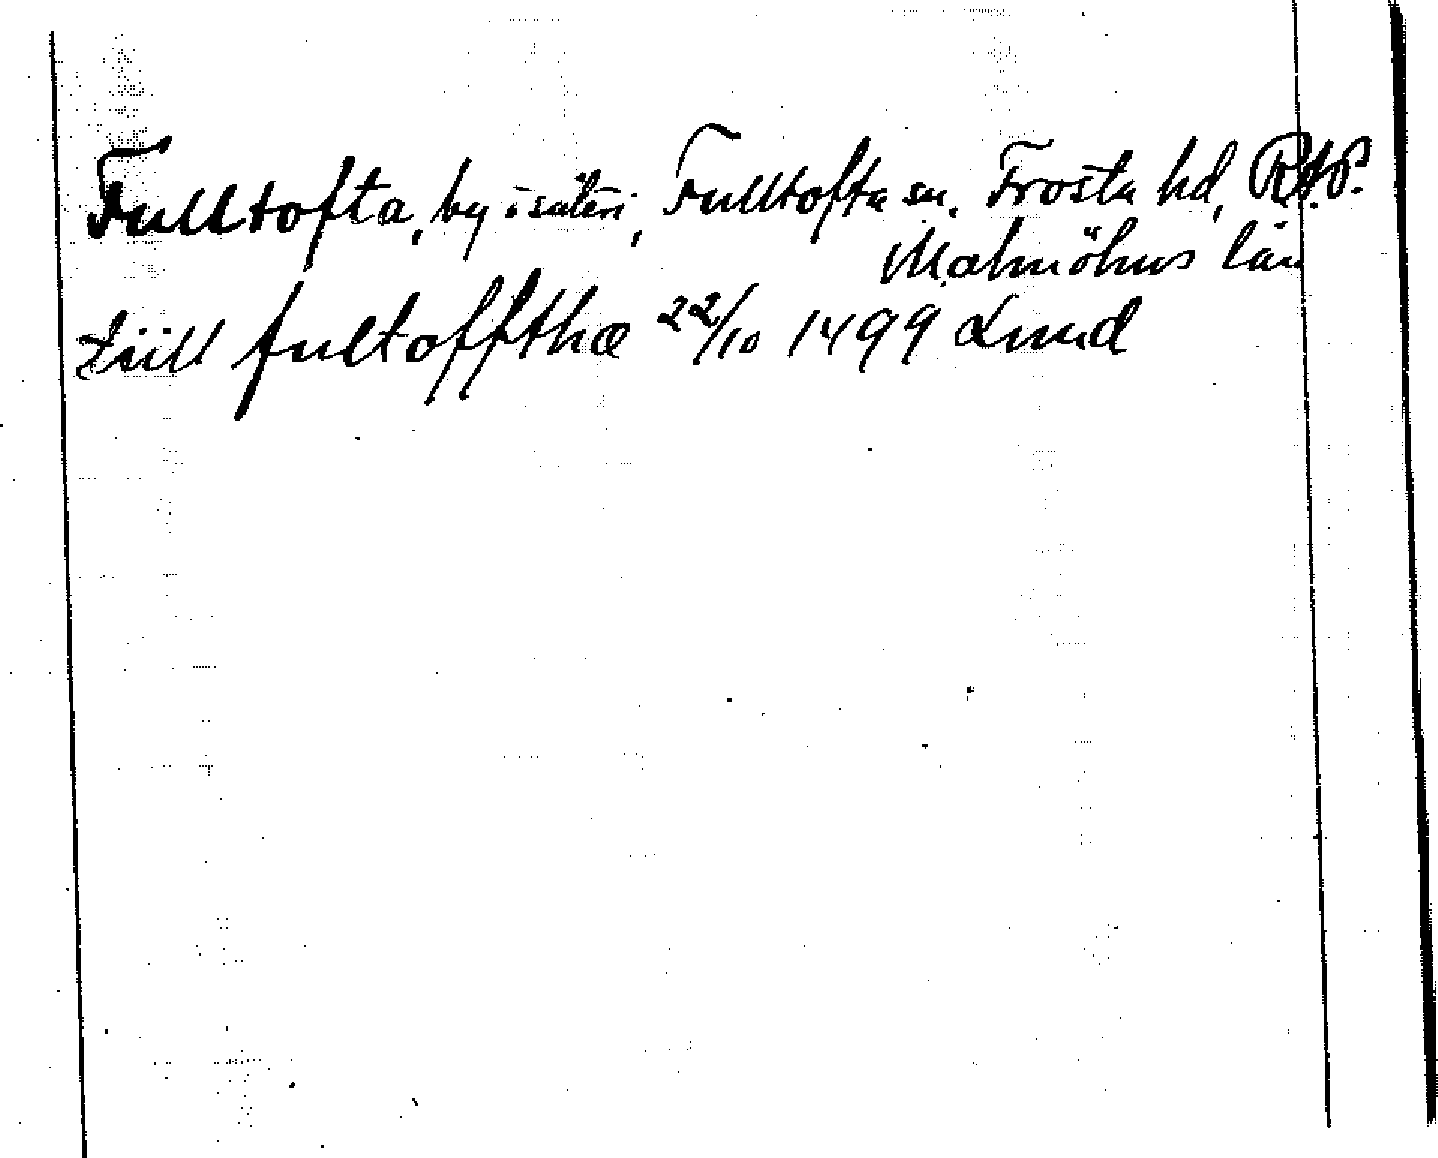 Fulltofta, by o. säteri, Fulltofta sn. Frosta hd, RAP.
Malmöhus län
tiill fultoffthæ 22/10 1499 Lund